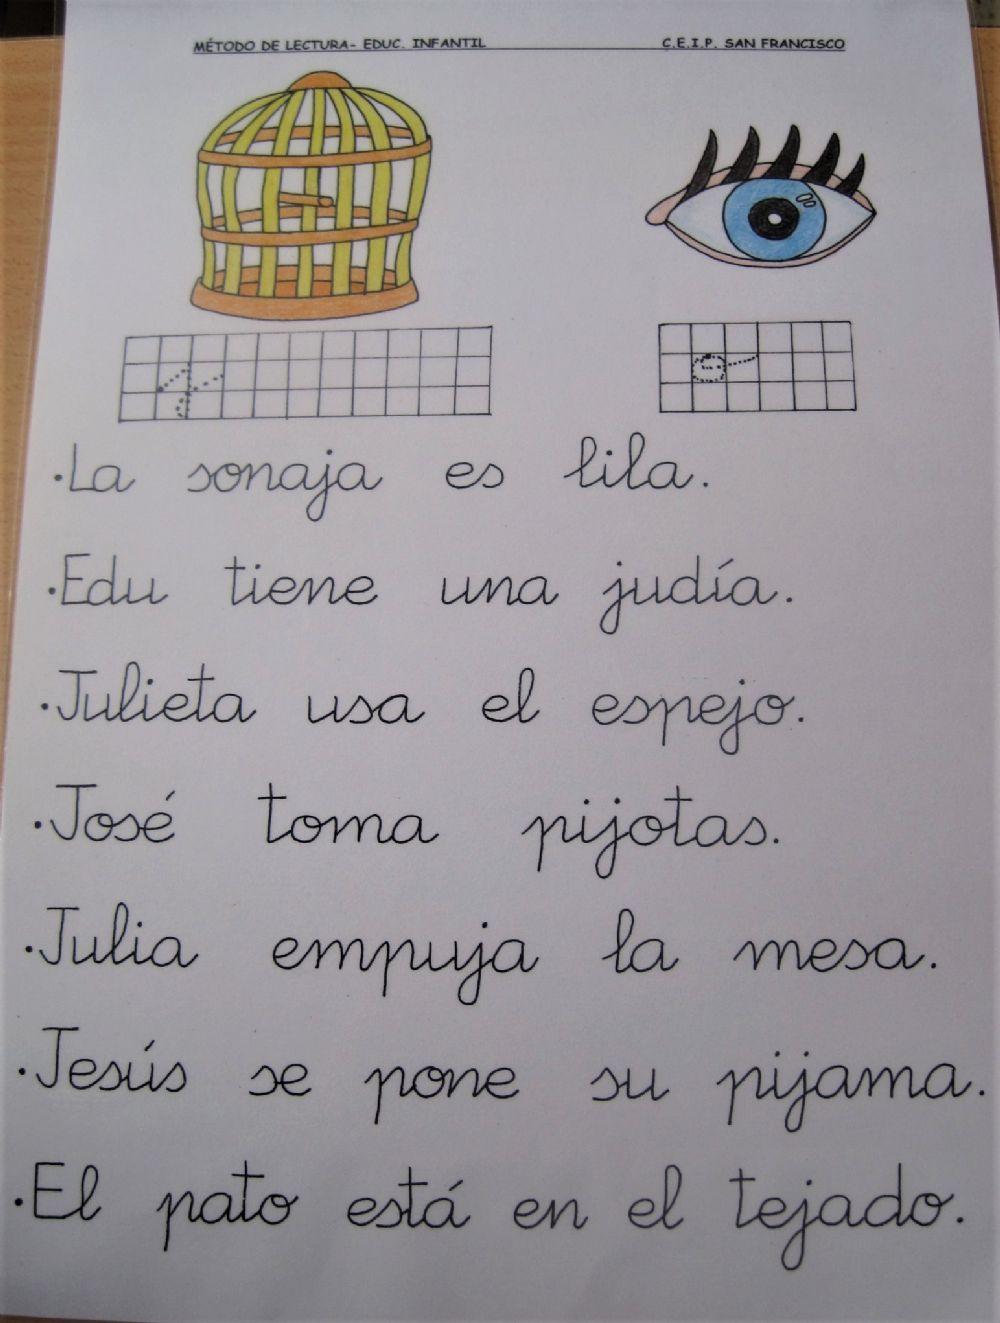 MÉTODO DE LECTURA- EDUC. INFANTIL C.E.I.P. SAN FRANCISCO
j o
·La sonaja es lila.
·Edu tiene una judía.
·Julieta usa el espejo.
·José toma pijotas.
·Julia empuja la mesa.
·Jesús se pone su pijama.
·El pato está en el tejado.